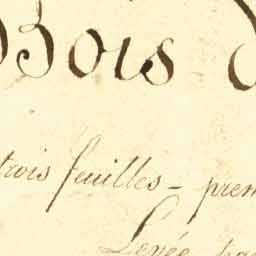 Bois
trois feuilles - prem
Levée